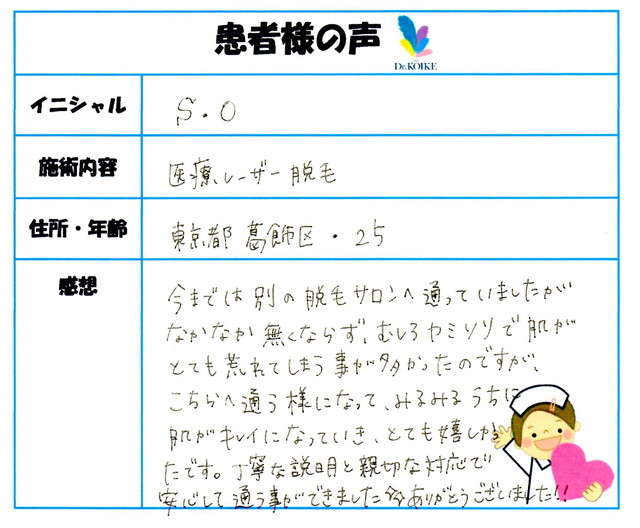 患者様の声
Dr.KOIKE
イニシャル
S.O
施術内容
医療レーザー脱毛
住所・年齢
東京都 葛飾区・25
感想
今までは別の脱毛サロンへ通っていましたが
なかなか無くならず、むしろカミソリで肌が
とても荒れてしまう事が多かったのですが、
こちらへ通う様になって、みるみるうちに
肌がキレイになっていき、とても嬉しかっ
たです。丁寧な説明と親切な対応で
安心して通う事ができました☆ありがとうございました!!